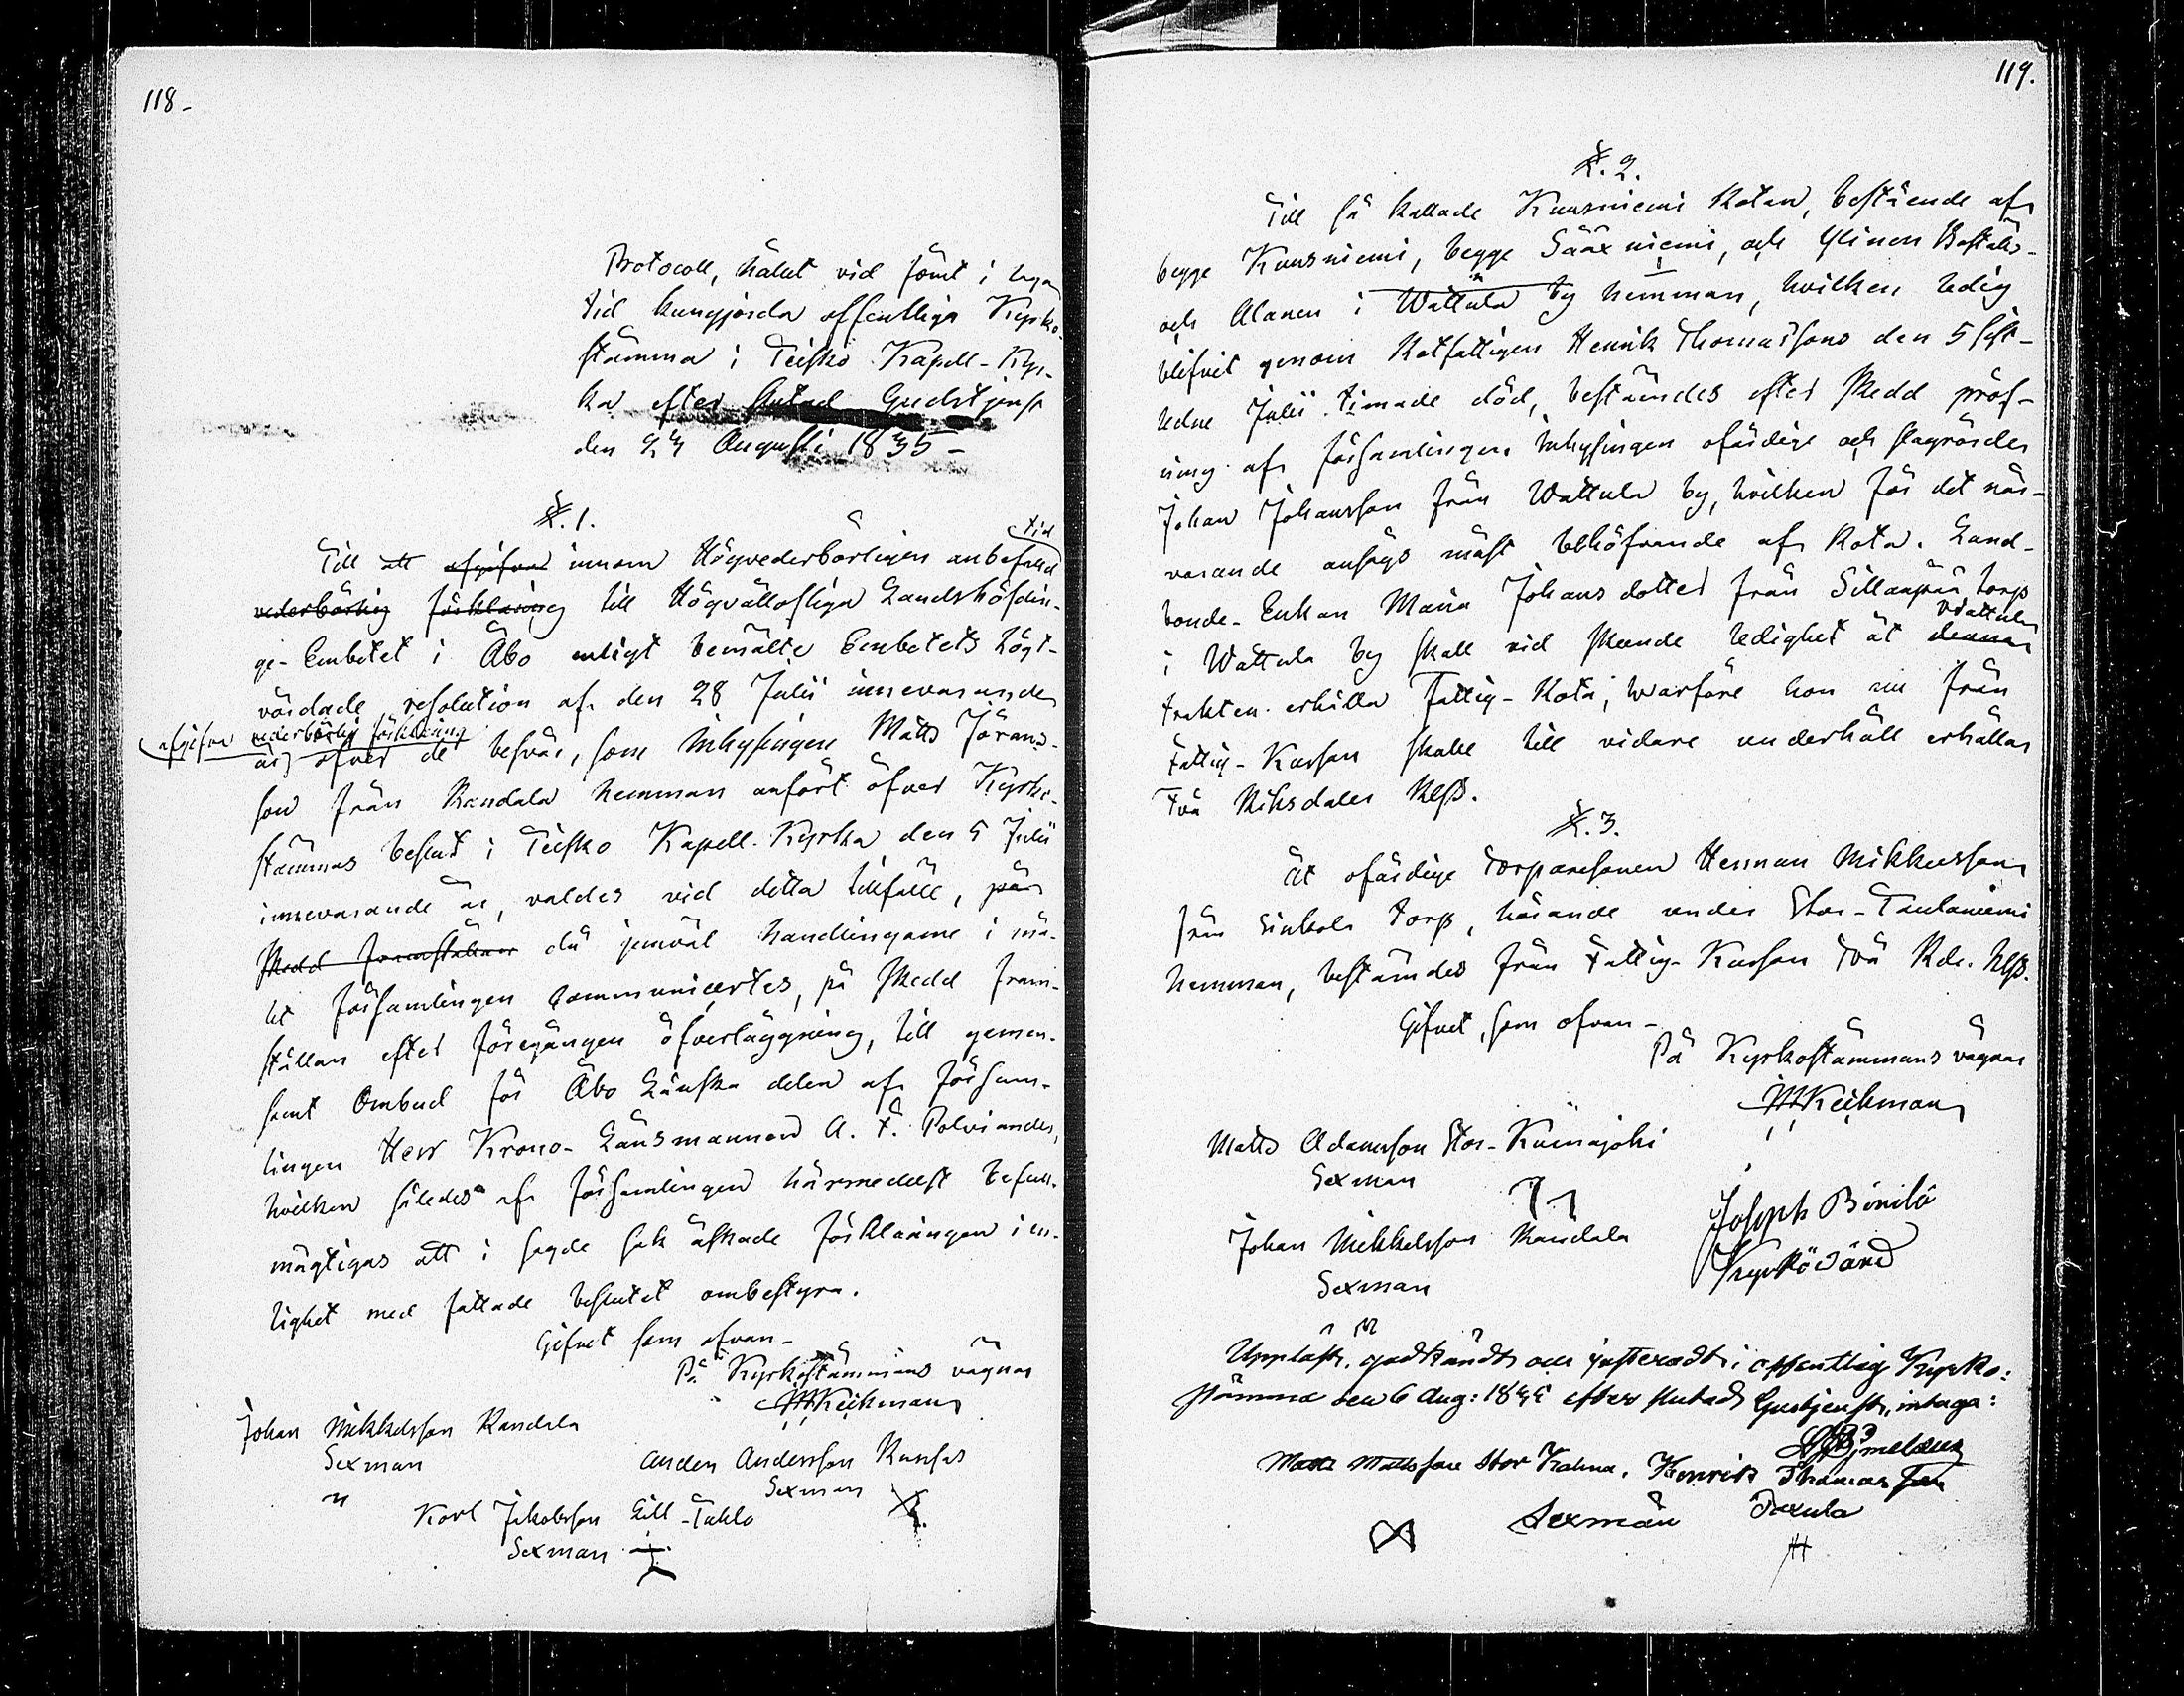 118.
Protocoll, hållit vid förut i laga
tid kungjorda offentliga Kyrko-
stämma i Teisko Kapell-Kyr-
ka efter slutad Gudstjenst
den Augusti 1835 -
§. 1.
Till att afgifva innom Högvederbörligen anbefalld tid
vederbörlig förklaring till Högvällofliga Landshöfdin-
ge-Embetet i Åbo enligt bemälte Embetets högt-
vördade resolution af den 28 Julii innevarande
afgifva vederbörlig förklaring
år, öfver de besvär, som Inhysingen Matts Jörans-
son från Kandala hemman anfört öfver Kyrko-
stämmas beslut i Teisko Kapell-Kyrka den 5 Julii
innevarande år, valdes vid detta tillfälle, på
skedd framställan då jemväl handlingarne i må-
let församlingen communicertes, på skedd fram-
ställan efter föregången öfverläggning, till gemen-
samt Ombud för Åbo Länska delen af försam-
lingen Herr Krono-Länsmannen A. F. Polviander,
hvilken således af församlingen härmedelst befull-
mägtigas att i sagde sak äskade förklaringen i en-
lighet med fattade beslutet ombestyra.
Gifvet som ofvan -
På Kyrkostämmans vägnar
M Keckman
Johan Mikkelsson Kandala
Sexman
Anders Andersson
Sexman
Karl Jakobsson Lill-
Sexman
119.
§. 2.
Till så kallade Kuusniemi Rotan, bestående af
begge Kuusniemi, begge Sääxniemi, och Ylinen Boställs-
och Alanen i Wattula by hemman, hvilken ledig
blifvit genom Rotfattigen Henrik Thomassons den 5 sist-
ledne Julii timade död, bestämdes efter skedd pröf-
ning af församlingen Inhysingen ofärdige och slagrörde
Johan Johansson från Wattula by, hvilken för det när-
varande ansågs mäst behöfvande af Rota. Land-
bonde-Enkan Maria Johansdotter från Sillanpää torp
i Wattula by skall vid skeende ledighet åt denna Wattula
trakten erhålla Fattig-Rota, hvarföre hon nu från
Fattig-Kassan skall till vidare underhåll erhålla
två Riksdaler Rgss.
§. 3.
Åt ofärdige Torparesonen Herman Mikkelsson
från torp, hörande under Stor-Tautaniemi
hemman, bestämdes från Fattig-Kassan två Rdr. Rgss.
Gifvet, som ofvan -
På Kyrkostämmans vägnar
M Keckman
Matts Adamsson Stor-
Sexman
Johan Mikkelsson Kandala
Sexman
Joseph
Kyrkovärd
Uppläst, godkändt och justeradt i offentlig Kyrko-
stämma den 6 Aug: efter slutad Gustjenst, intyga:
Matts Mattsson Stor Henrik Thomasson
Sexmän